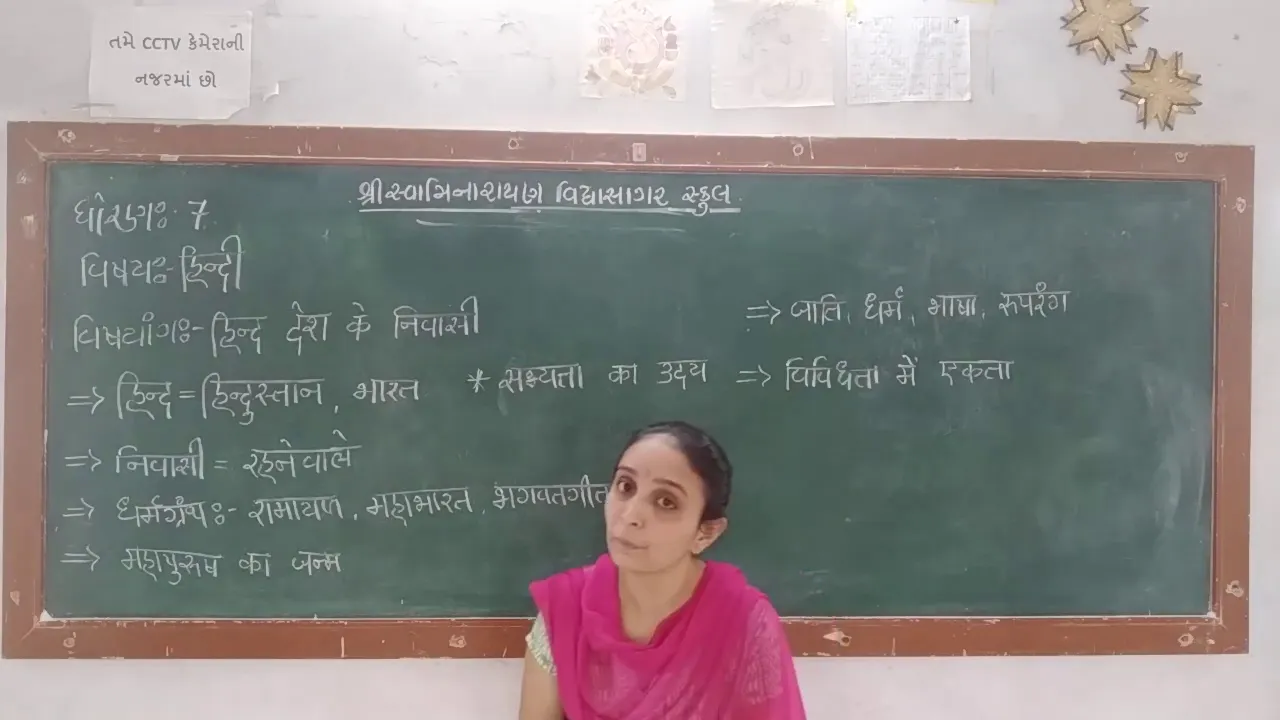 તમે CCTV કેમેરાની
નજરમાં છો
શ્રી સ્વામિનારાયણ વિદ્યાસાગર સ્કુલ
ધોરણઃ- 7
વિષયઃ- हिन्दी
વિષયાંગઃ- हिन्द देश के निवासी
=> हिन्द = हिन्दुस्तान, भारत
* सभ्यता का उदय
=> निवासी = रहनेवाले
=> धर्मग्रंथः- रामायण, महाभारत, भगवतगीत
=> महापुरुष का जन्म
=> जाति, धर्म, भाषा, रुपरंग
=> विविधता में एकता